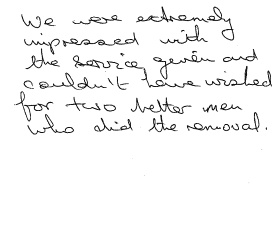 We were extremely
impressed with
the service given and
couldn't have wished
for two better men
who did the removal.